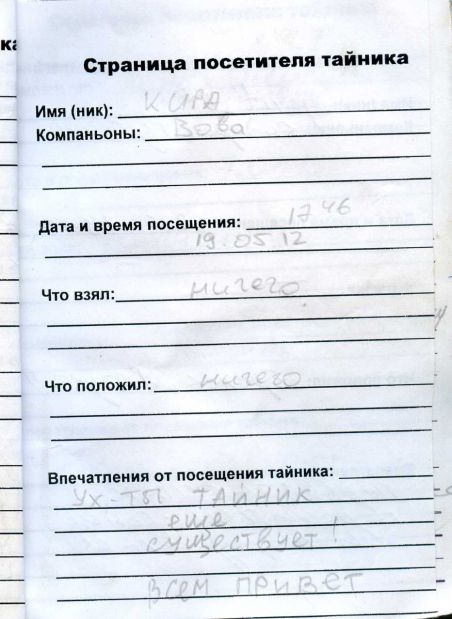 ка
Страница посетителя тайника
Имя (ник): КИРА
Компаньоны: Вова
Дата и время посещения: 17 46
19.05 12
Что взял: ничего
Что положил: ничего
Впечатления от посещения тайника:
УХ-ТЫ ТАЙНИК
еще
существует!
ВСЕМ ПРИВЕТ